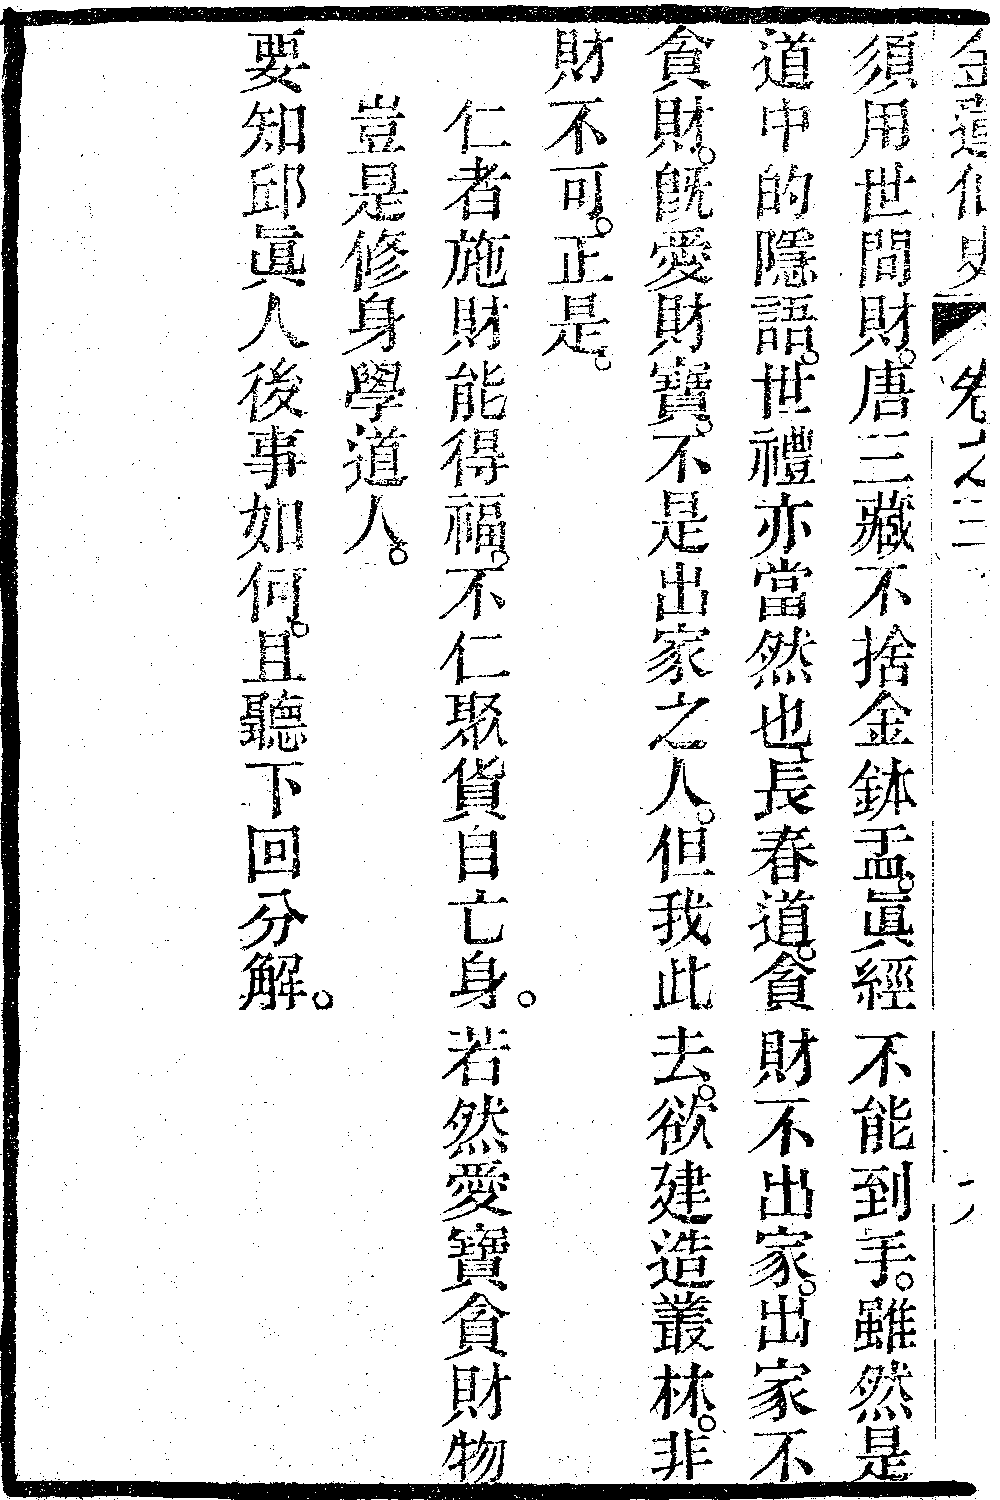 金蓮仙史 卷之三
須用世間財。唐三藏不捨金鉢盂。眞經不能到手。雖然是
道中的隱語。世禮亦當然也。長春道。貪財不出家。出家不
貪財。旣愛財寶。不是出家之人。但我此去。欲建造叢林。非
財不可。正是。
仁者施財能得福。不仁聚貨自亡身。若然愛寶貪財物
豈是修身學道人。
要知邱眞人後事如何。且聽下回分解。